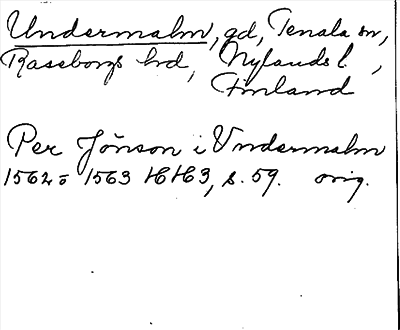 Undermalm, gd, Tenala sn,
Raseborgs hrd, Nylands l,
Finland
Per Jönson i Vndermalm
1562 o 1563 HH3, s. 59. orig.